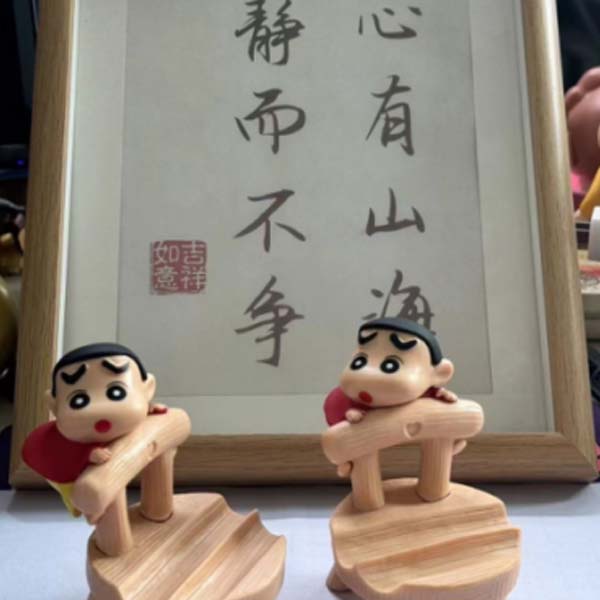 心有山海
静而不争
吉祥
如意